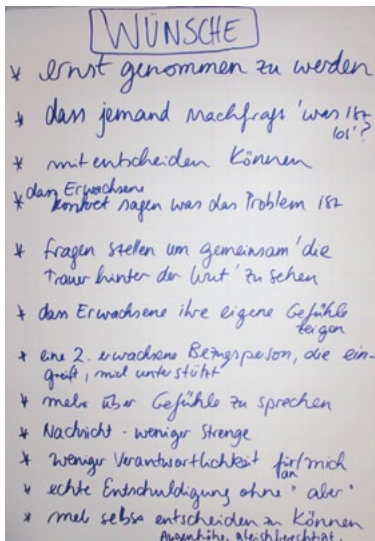 WÜNSCHE
* ernst genommen zu werden
* dass jemand nachfragt 'was ist
los'?
* mitentscheiden können
* dass Erwachsene
konkret sagen was das Problem ist
* fragen stellen um gemeinsam 'die
Trauer hinter der Wut' zu sehen
* dass Erwachsene ihre eigene Gefühle
zeigen
* eine 2. erwachsene Bezugsperson, die ein-
greift, mich unterstützt
* mehr über Gefühle zu sprechen
* Nachricht - weniger Strenge
* weniger Verantwortlichkeit für/mich
an
* echte Entschuldigung ohne "aber"
* mehr selbst entscheiden zu können
Augenhöhe, gleichberechtigt